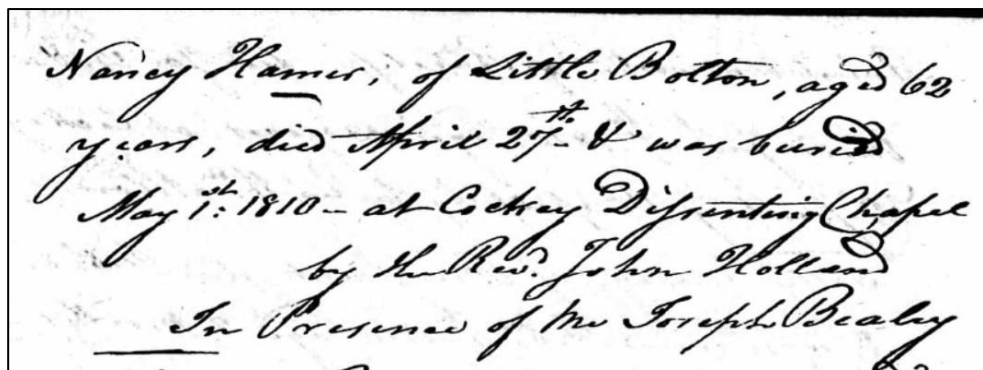 Nancy Hamer, of Little Bolton, aged 62
years, died April 27th & was buried
May 1st: 1810 – at Cockey Dissenting Chapel
by the Revd. John Holland
In Presence of me Joseph Bealey